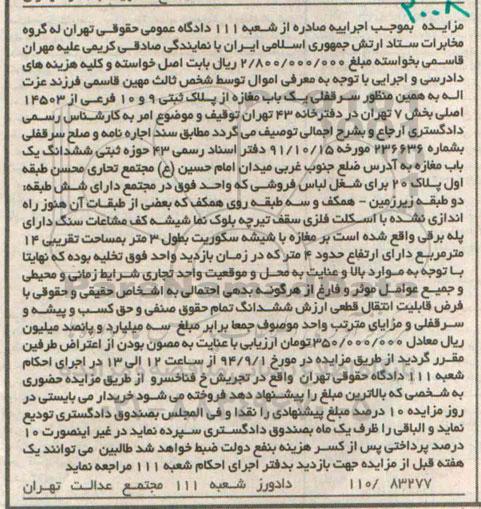 ۲۰۰۸
مزایده  بموجب اجراییه صادره از شعبه ۱۱۱ دادگاه عمومی حقوقی تهران له گروه
مخابرات ستاد ارتش جمهوری اسلامی ایران با نمایندگی صادقی کریمی علیه مهران
قاسمی بخواسته مبلغ ۲/۸۰۰/۰۰۰/۰۰۰ ریال بابت اصل خواسته و کلیه هزینه های
دادرسی و اجرایی با توجه به معرفی اموال توسط شخص ثالث مهین قاسمی فرزند عزت
اله به همین منظور سرقفلی یک باب مغازه از پلاک ثبتی ۹ و ۱۰ فرعی از ۱۴۵۰۳
اصلی بخش ۷ تهران در دفترخانه ۴۳ تهران توقیف و موضوع امر به کارشناس رسمی
دادگستری ارجاع و بشرح اجمالی توصیف می گردد مطابق سند اجاره نامه و صلح سرقفلی
بشماره ۲۳۶۶۳۶ مورخه ۹۱/۱۰/۱۵ دفتر اسناد رسمی ۴۳ حوزه ثبتی ششدانگ یک
باب مغازه به آدرس ضلع جنوب غربی میدان امام حسین (ع) مجتمع تجاری محسن طبقه
اول پلاک ۲۰ برای شغل لباس فروشی که واحد فوق در مجتمع دارای شش طبقه:
دو طبقه زیرزمین - همکف و سه طبقه روی همکف که بعضی از طبقات آن هنوز راه
اندازی نشده با اسکلت فلزی سقف تیرچه بلوک نما شیشه کف مشاعات سنگ دارای
پله برقی واقع شده است بر مغازه با شیشه سکوریت بطول ۳ متر بمساحت تقریبی ۱۴
مترمربع دارای ارتفاع حدود ۴ متر که در زمان بازدید واحد فوق تخلیه بوده که نهایتا
با توجه به موارد بالا و عنایت به محل و موقعیت واحد تجاری شرایط زمانی و محیطی
و جمیع عوامل موثر و فارغ از هرگونه بدهی احتمالی به اشخاص حقیقی و حقوقی با
فرض قابلیت انتقال قطعی ارزش ششدانگ تمام حقوق صنفی و حق کسب و پیشه و
سرقفلی و مزایای مترتب واحد موصوف جمعا برابر مبلغ سه میلیارد و پانصد میلیون
ریال معادل ۳۵۰/۰۰۰/۰۰۰ تومان ارزیابی با عنایت به مصون بودن از اعتراض طرفین
مقرر گردید از طریق مزایده در مورخ ۹۴/۹/۱ از ساعت ۱۲ الی ۱۳ در اجرای احکام
شعبه ۱۱۱ دادگاه حقوقی تهران  واقع در تجریش خ فناخسرو  از طریق مزایده حضوری
به شخصی که بالاترین مبلغ را پیشنهاد دهد فروخته می شود خریدار می بایستی در
روز مزایده ۱۰ درصد مبلغ پیشنهادی را نقدا و فی المجلس بصندوق دادگستری تودیع
نماید و الباقی را ظرف یک ماه بصندوق دادگستری سپرده نماید در غیر اینصورت ۱۰
درصد پرداختی پس از کسر هزینه بنفع دولت ضبط خواهد شد طالبین می توانند یک
هفته قبل از مزایده جهت بازدید بدفتر اجرای احکام شعبه ۱۱۱ مراجعه نماید
۱۱۰/ ۸۳۲۷۷  دادورز شعبه ۱۱۱ مجتمع عدالت تهران